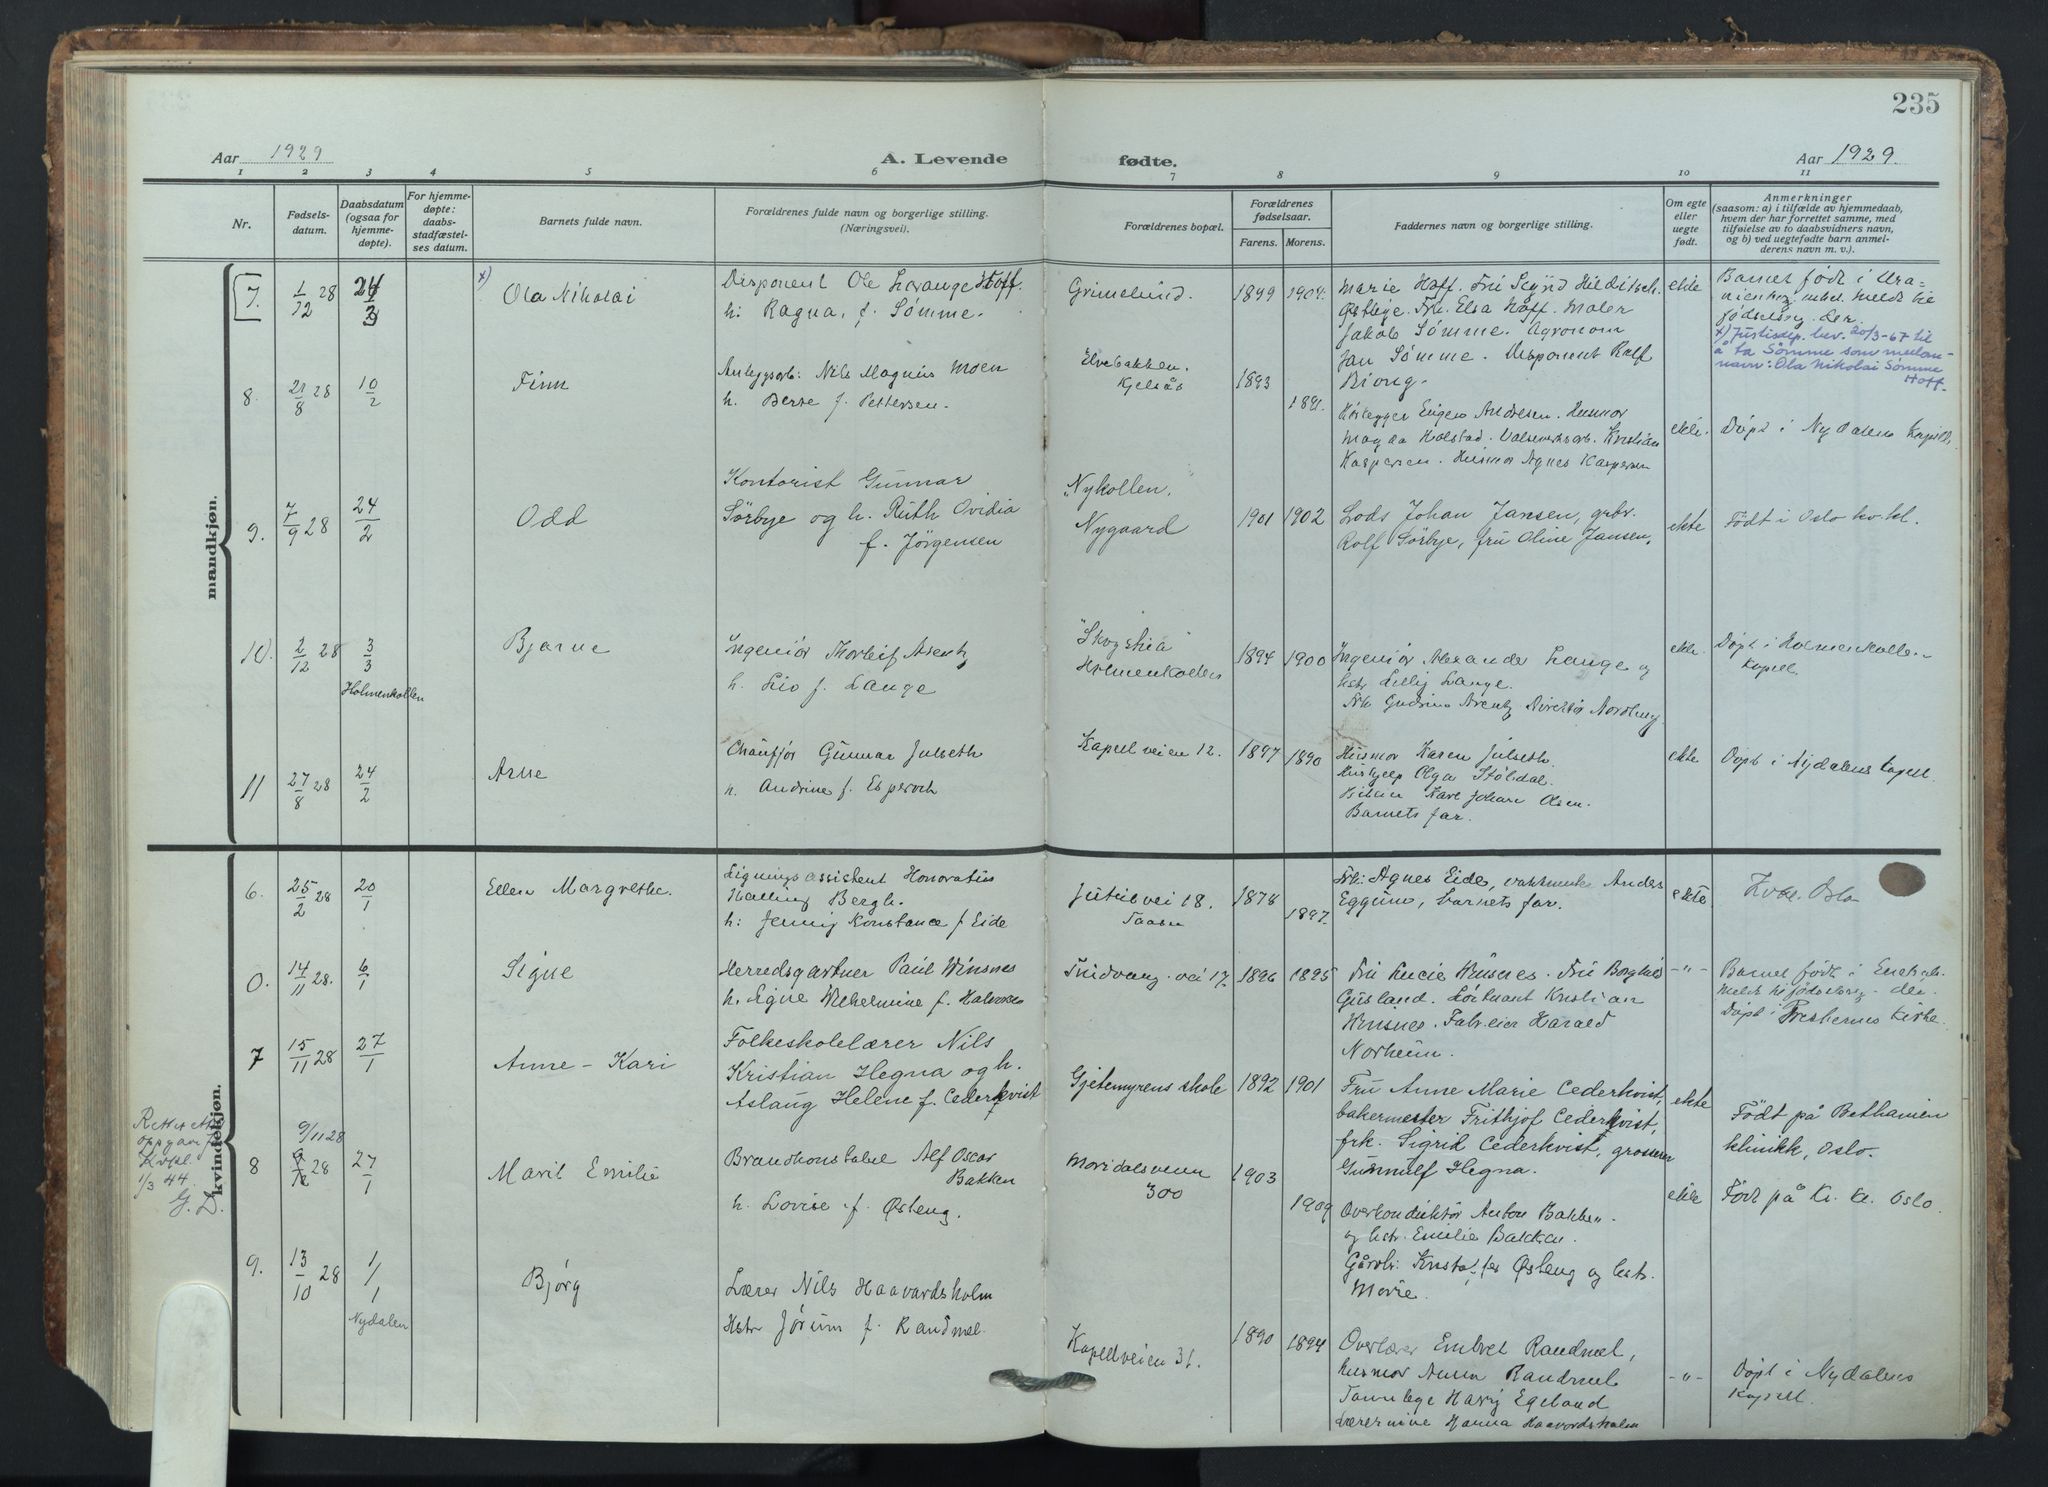 235
Aar 1929
A. Levende fødte.
Aar 1929.
1 2 3 4 5 6 7 8 9 10 11
Nr.
Fødsels-
datum.
Daabsdatum
(ogsaa for
hjemme-
døpte).
For hjemme-
døpte:
daabs-
stadfæstel-
ses datum.
Barnets fulde navn.
Forældrenes fulde navn og borgerlige stilling.
(Næringsvei).
Forældrenes bopæl.
Forældrenes
fødselsaar.
Farens. Morens.
Faddernes navn og borgerlige stilling.
Om egte
eller
uegte
født.
Anmerkninger
(saasom: a) i tilfælde av hjemmedaab,
hvem der har forrettet samme, med
tilføielse av to daabsvidners navn,
og b) ved uegtefødte barn anmel-
derens navn m. v.).
mandkjøn.
7. 1/12 28 24/3
x) Ola Nikolai
Disponent Ole Hoff.
h. Ragna, f. Sømme.
Grimelund.
1899 1904.
Marie Hoff. Fru Sigrid
Østbye. Frk. Elsa Hoff. Maler
Jakob Sømme. Agronom
Jan Sømme. Disponent Rolf
Biong.
ekte
Barnet født i Ura-
nienborg meldt til
fødselsreg. der.
x) Justisdep. bev. 20/3-67 til
å ta Sømme som mellom-
navn: Ola Nikolai Sømme
Hoff.
8. 21/8 28 10/2
Finn
Anleggsarb: Nils Magnus Moen
h. f. Pettersen.
Elvebakken.
Kjelsås
1893 1891.
Andresen. Husmor
Magda Holstad. Valseverksarb. Kristian
Kaspersen. Husmor Agnes Kaspersen
ekte.
Døpt i Nydalens Kapell.
9. 7/9 28 24/2
Odd
Kontorist Gunnar
Sørbye og h. Ruth Ovidia
f. Jørgensen
"Nykollen.
Nygaard
1901 1902
Lods Johan Jansen, grbr.
Rolf Sørbye, fru Oline Jansen.
ekte
Født i Oslo kv. kl.
10. 2/12 28 3/3
Holmenkollen
Bjarne
Ingeniør Thorleif Arentz
h. Liv f. Lange
Holmenkollen
1894 1900
Ingeniør Alexander Lange og
hstr. Lilly Lange.
Frk Gudrun Arentz Direktør Nordberg
ekte.
Døpt i Holmenkollen
Kapell.
11 27/8 28 24/2
Arne
Chaufför Gunnar Julseth
h. Andrine f. Esperoch
Kapellveien 12.
1897 1890
Husmor Karen Julseth.
Olga Stöldal.
Karl Johan Olsen.
Barnets far.
ekte
Døpt i Nydalens kapell.
kvindekjøn.
6. 25/2 28 20/1
Ellen Margrethe.
Ligningsassistent Honoratius
Halling Bergh.
h: Jenny Konstance f Eide
Jutulvei 18.
Taasen
1878 1897.
Frk: Agnes Eide, Anders
Eggum, barnets far.
ekte
Oslo
0. 14/11 28. 6/1
Signe
Herredsgartner Paul Winsnes
h. Signe Wilhelmine f.
Tuidvang. vei 17.
1896 1895
Fru Lucie Winsnes. Fru Borghild
Gusland. Löitnant Kristian
Winsnes. Fabr.eier Harald
Norheim.
-"-
Barnet født i
meldt til fødselsreg. der.
Døpt i Kirke.
7 15/11 28 27/1
Anne-Kari
Folkeskolelærer Nils
Kristian Hegna og h.
Aslaug Helene f. Cederkvist
Gjetemyrens skole
1892 1901
Fru Anne Marie Cederkvist,
bakermester Frithjof Cederkvist,
frk. Sigrid Cederkvist, grosserer
Gunnulf Hegna.
ekte
Født på Bethanien
klinikk, Oslo.
Rettet etter
oppgave fra
Kvkl.
1/3 44.
G. D.
9/11 28
8 28 27/1
Marit Emilie
Brandkonstabel Alf Oscar
Bakken
h. Lovise f. Østeng.
Maridalsveien
300
1903 1909
Overkonduktør Anton Bakken
og hstr. Emilie Bakken.
Gårdbr. Kristoffer Østeng og hstr.
Marie.
ekte
Født på Kv. Kl. Oslo.
9. 13/10 28 1/1
Nydalen
Bjørg
Lærer Nils Haavardsholm
Hstr Jørum f. Randmel.
Kapellveien 31.
1890 1894
Overlærer Embret Randmel,
husmor Anna Randmel
Tannlege Harry Egeland
Lærerinne Hanna Haavardsholm
-"-
Døpt i Nydalens
kapell.